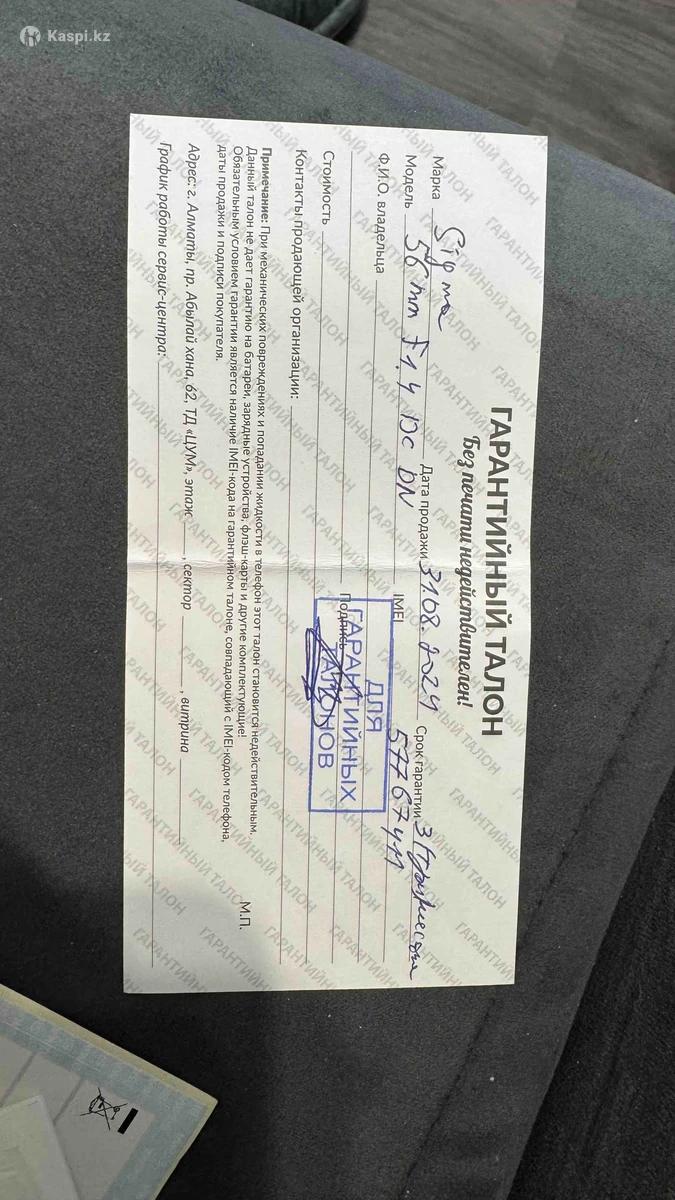 Kaspi.kz
ГАРАНТИЙНЫЙ ТАЛОН
Без печати недействителен!
Марка Sigma Дата продажи 31.08.2024 Срок гарантии 3 (три) месяца
Модель 56 mm F1.4 DC DN IMEI 57767411
Ф.И.О. владельца
Стоимость Подпись
ДЛЯ
ГАРАНТИЙНЫХ
ТАЛОНОВ
Контакты продающей организации:
М.П.
Примечание: При механических повреждениях и попадании жидкости в телефон этот талон становится недействительным.
Данный талон не дает гарантию на батареи, зарядные устройства, флэш-карты и другие комплектующие!
Обязательным условием гарантии является наличие IMEI-кода на гарантийном талоне, совпадающий с IMEI-кодом телефона,
даты продажи и подписи покупателя.
Адрес: г. Алматы, пр. Абылай хана, 62, ТД «ЦУМ», этаж , сектор , витрина
График работы сервис-центра: